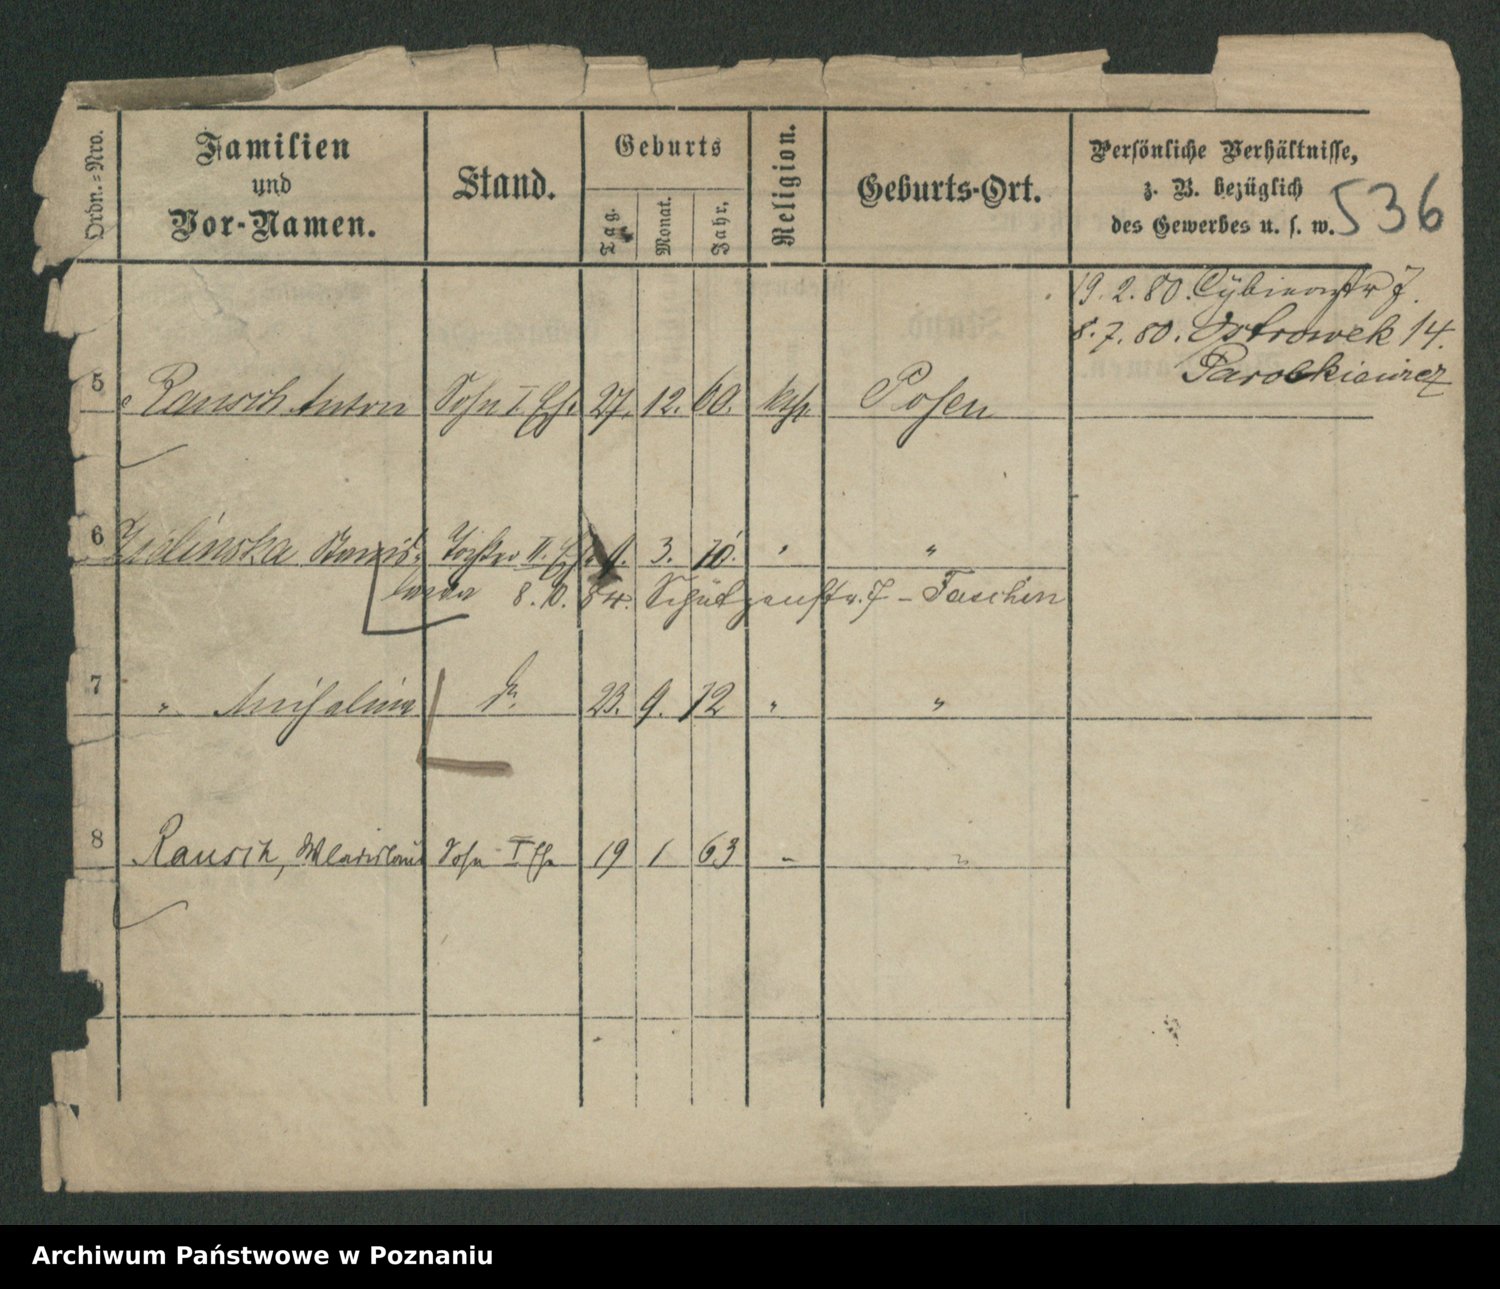 Ordn.=Nro.
Familien
und
Vor-Namen.
Stand.
Geburts
Tag.
Monat.
Jahr.
Religion.
Geburts-Ort.
Persönliche Verhältnisse,
z. B. bezüglich
des Gewerbes u. s. w.
536
19. 2. 80. Cybinastr 7.
8. 7. 80. Ostrowek 14.
5 Rausch Anton Sohn I. Eh. 27. 12. 60. kth Posen
6 Zielinska Stanis- Tochter II. Eh. 3. 70. " "
lawa 8. 10. 84. Schützenstr. 7 - Taschen
7 " Michalina d. 23. 9. 72 " "
8 Rausch, Wladislaus Sohn I Eh 19 1 63 " "
Archiwum Państwowe w Poznaniu